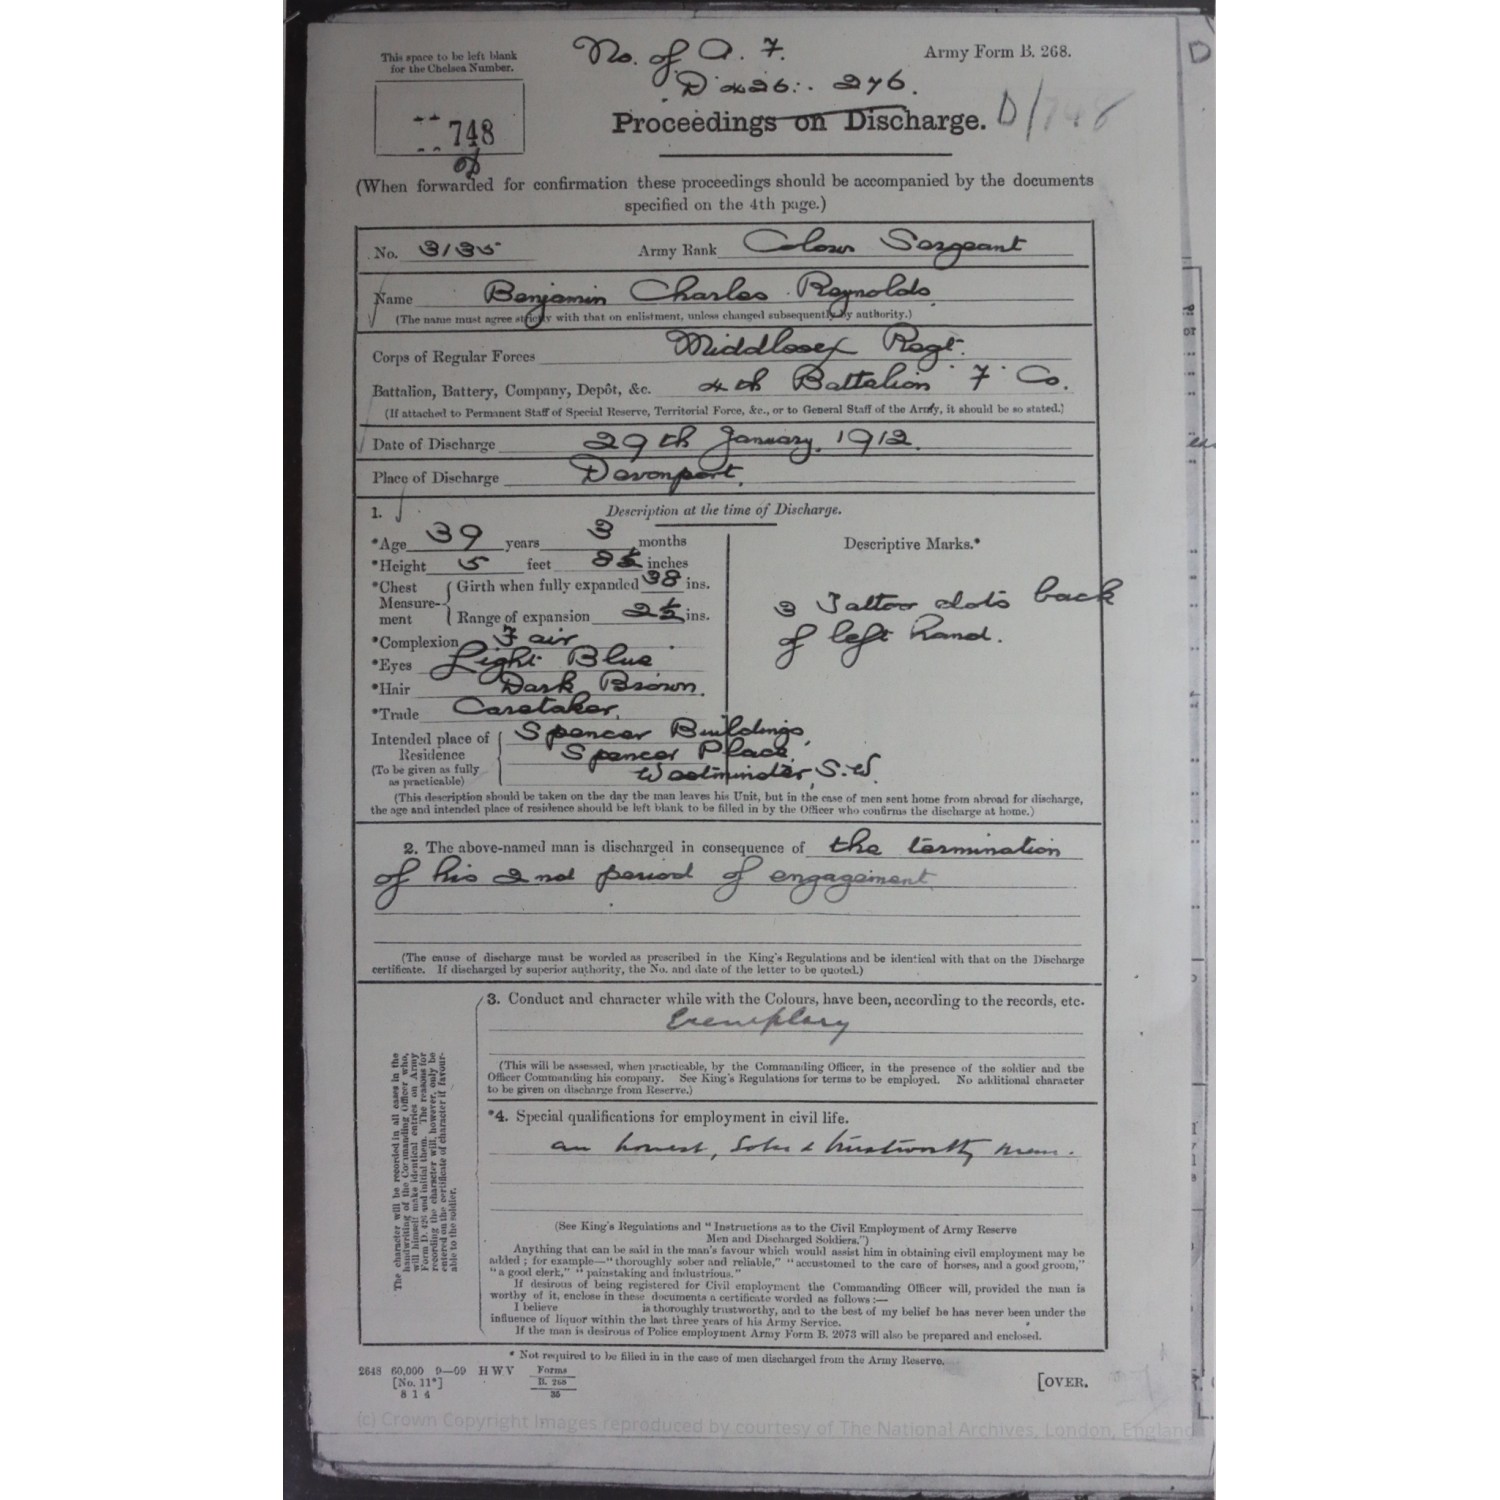 This space to be left blank
for the Chelsea Number.
748
No. of A. F.
D 426: 276.
Army Form B. 268.
Proceedings on Discharge.
D/748
(When forwarded for confirmation these proceedings should be accompanied by the documents
specified on the 4th page.)
No. 3135 Army Rank Colour Sergeant
Name Benjamin Charles Reynolds
(The name must agree strictly with that on enlistment, unless changed subsequently by authority.)
Corps of Regular Forces Middlesex Regt.
Battalion, Battery, Company, Depôt, &c. 4th Battalion 'F' Co.
(If attached to Permanent Staff of Special Reserve, Territorial Force, &c., or to General Staff of the Army, it should be so stated.)
Date of Discharge 29th January, 1912.
Place of Discharge Devonport.
1. Description at the time of Discharge.
*Age 39 years 3 months
*Height 5 feet 8½ inches
*Chest Measure-ment Girth when fully expanded 38 ins.
Range of expansion 2½ ins.
*Complexion Fair
*Eyes Light Blue
*Hair Dark Brown.
*Trade Caretaker.
Intended place of Residence (To be given as fully as practicable) Spencer Buildings,
Spencer Place,
Westminster, S.W.
Descriptive Marks.*
3 Tattoo dots back
of left hand.
(This description should be taken on the day the man leaves his Unit, but in the case of men sent home from abroad for discharge,
the age and intended place of residence should be left blank to be filled in by the Officer who confirms the discharge at home.)
2. The above-named man is discharged in consequence of the termination
of his 2nd period of engagement
(The cause of discharge must be worded as prescribed in the King's Regulations and be identical with that on the Discharge
certificate. If discharged by superior authority, the No. and date of the letter to be quoted.)
The character will be recorded in all cases in the
handwriting of the Commanding Officer who,
will himself make identical entries on Army
Form D. 426 and initial them. The reasons for
recording the character will, however, only be
entered on the certificate of character if favour-
able to the soldier.
3. Conduct and character while with the Colours, have been, according to the records, etc.
Exemplary
(This will be assessed, when practicable, by the Commanding Officer, in the presence of the soldier and the
Officer Commanding his company. See King's Regulations for terms to be employed. No additional character
to be given on discharge from Reserve.)
*4. Special qualifications for employment in civil life.
an honest, sober & trustworthy man.
(See King's Regulations and "Instructions as to the Civil Employment of Army Reserve
Men and Discharged Soldiers.")
Anything that can be said in the man's favour which would assist him in obtaining civil employment may be
added; for example—"thoroughly sober and reliable," "accustomed to the care of horses, and a good groom,"
"a good clerk," "painstaking and industrious."
If desirous of being registered for Civil employment the Commanding Officer will, provided the man is
worthy of it, enclose in these documents a certificate worded as follows:—
I believe is thoroughly trustworthy, and to the best of my belief he has never been under the
influence of liquor within the last three years of his Army Service.
If the man is desirous of Police employment Army Form B. 2073 will also be prepared and enclosed.
* Not required to be filled in in the case of men discharged from the Army Reserve.
2648 60,000 9—09 H W V Forms
[No. 11*] B. 268
8 1 4 35
[OVER.
(c) Crown Copyright Images reproduced by courtesy of The National Archives, London, England